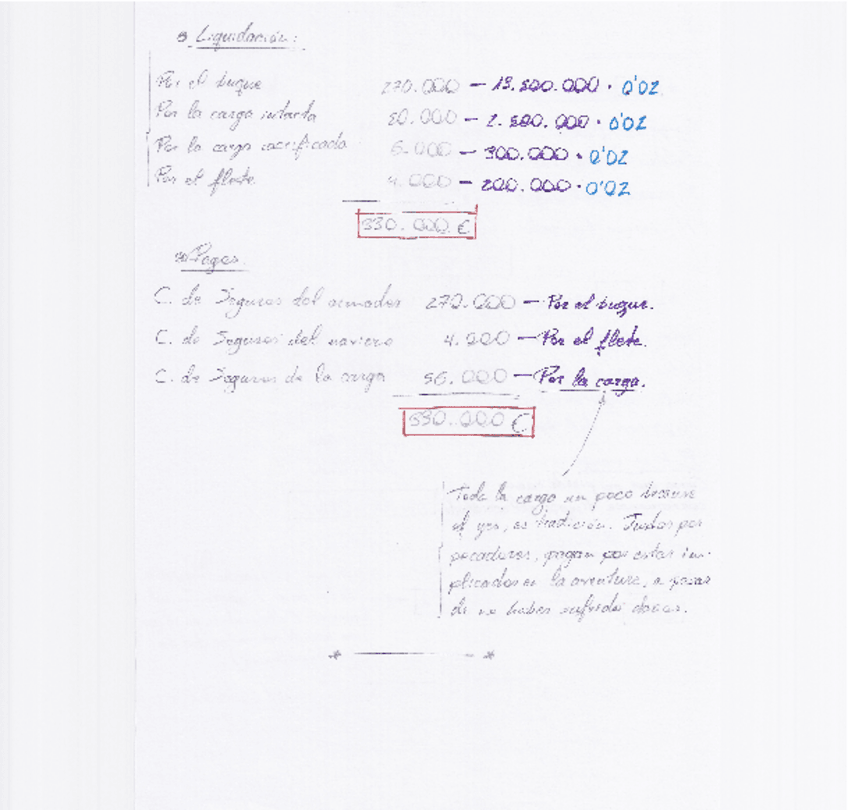 Liquidación:
Por el buque 270.000 — 13.500.000 · 0'02
Por la carga intacta 50.000 — 2.500.000 · 0'02
Por la carga sacrificada 6.000 — 300.000 · 0'02
Por el flete 4.000 — 200.000 · 0'02
330.000 €
Pagos.
C. de Seguros del armador 270.000 — Por el buque.
C. de Seguros del naviero 4.000 — Por el flete.
C. de Seguros de la carga 56.000 — Por la carga.
330.000 €
Toda la carga un poco because
of yes, es tradición. Justos por
pecadores, pagan por estar im-
plicados en la aventura, a pesar
de no haber sufrido daños.